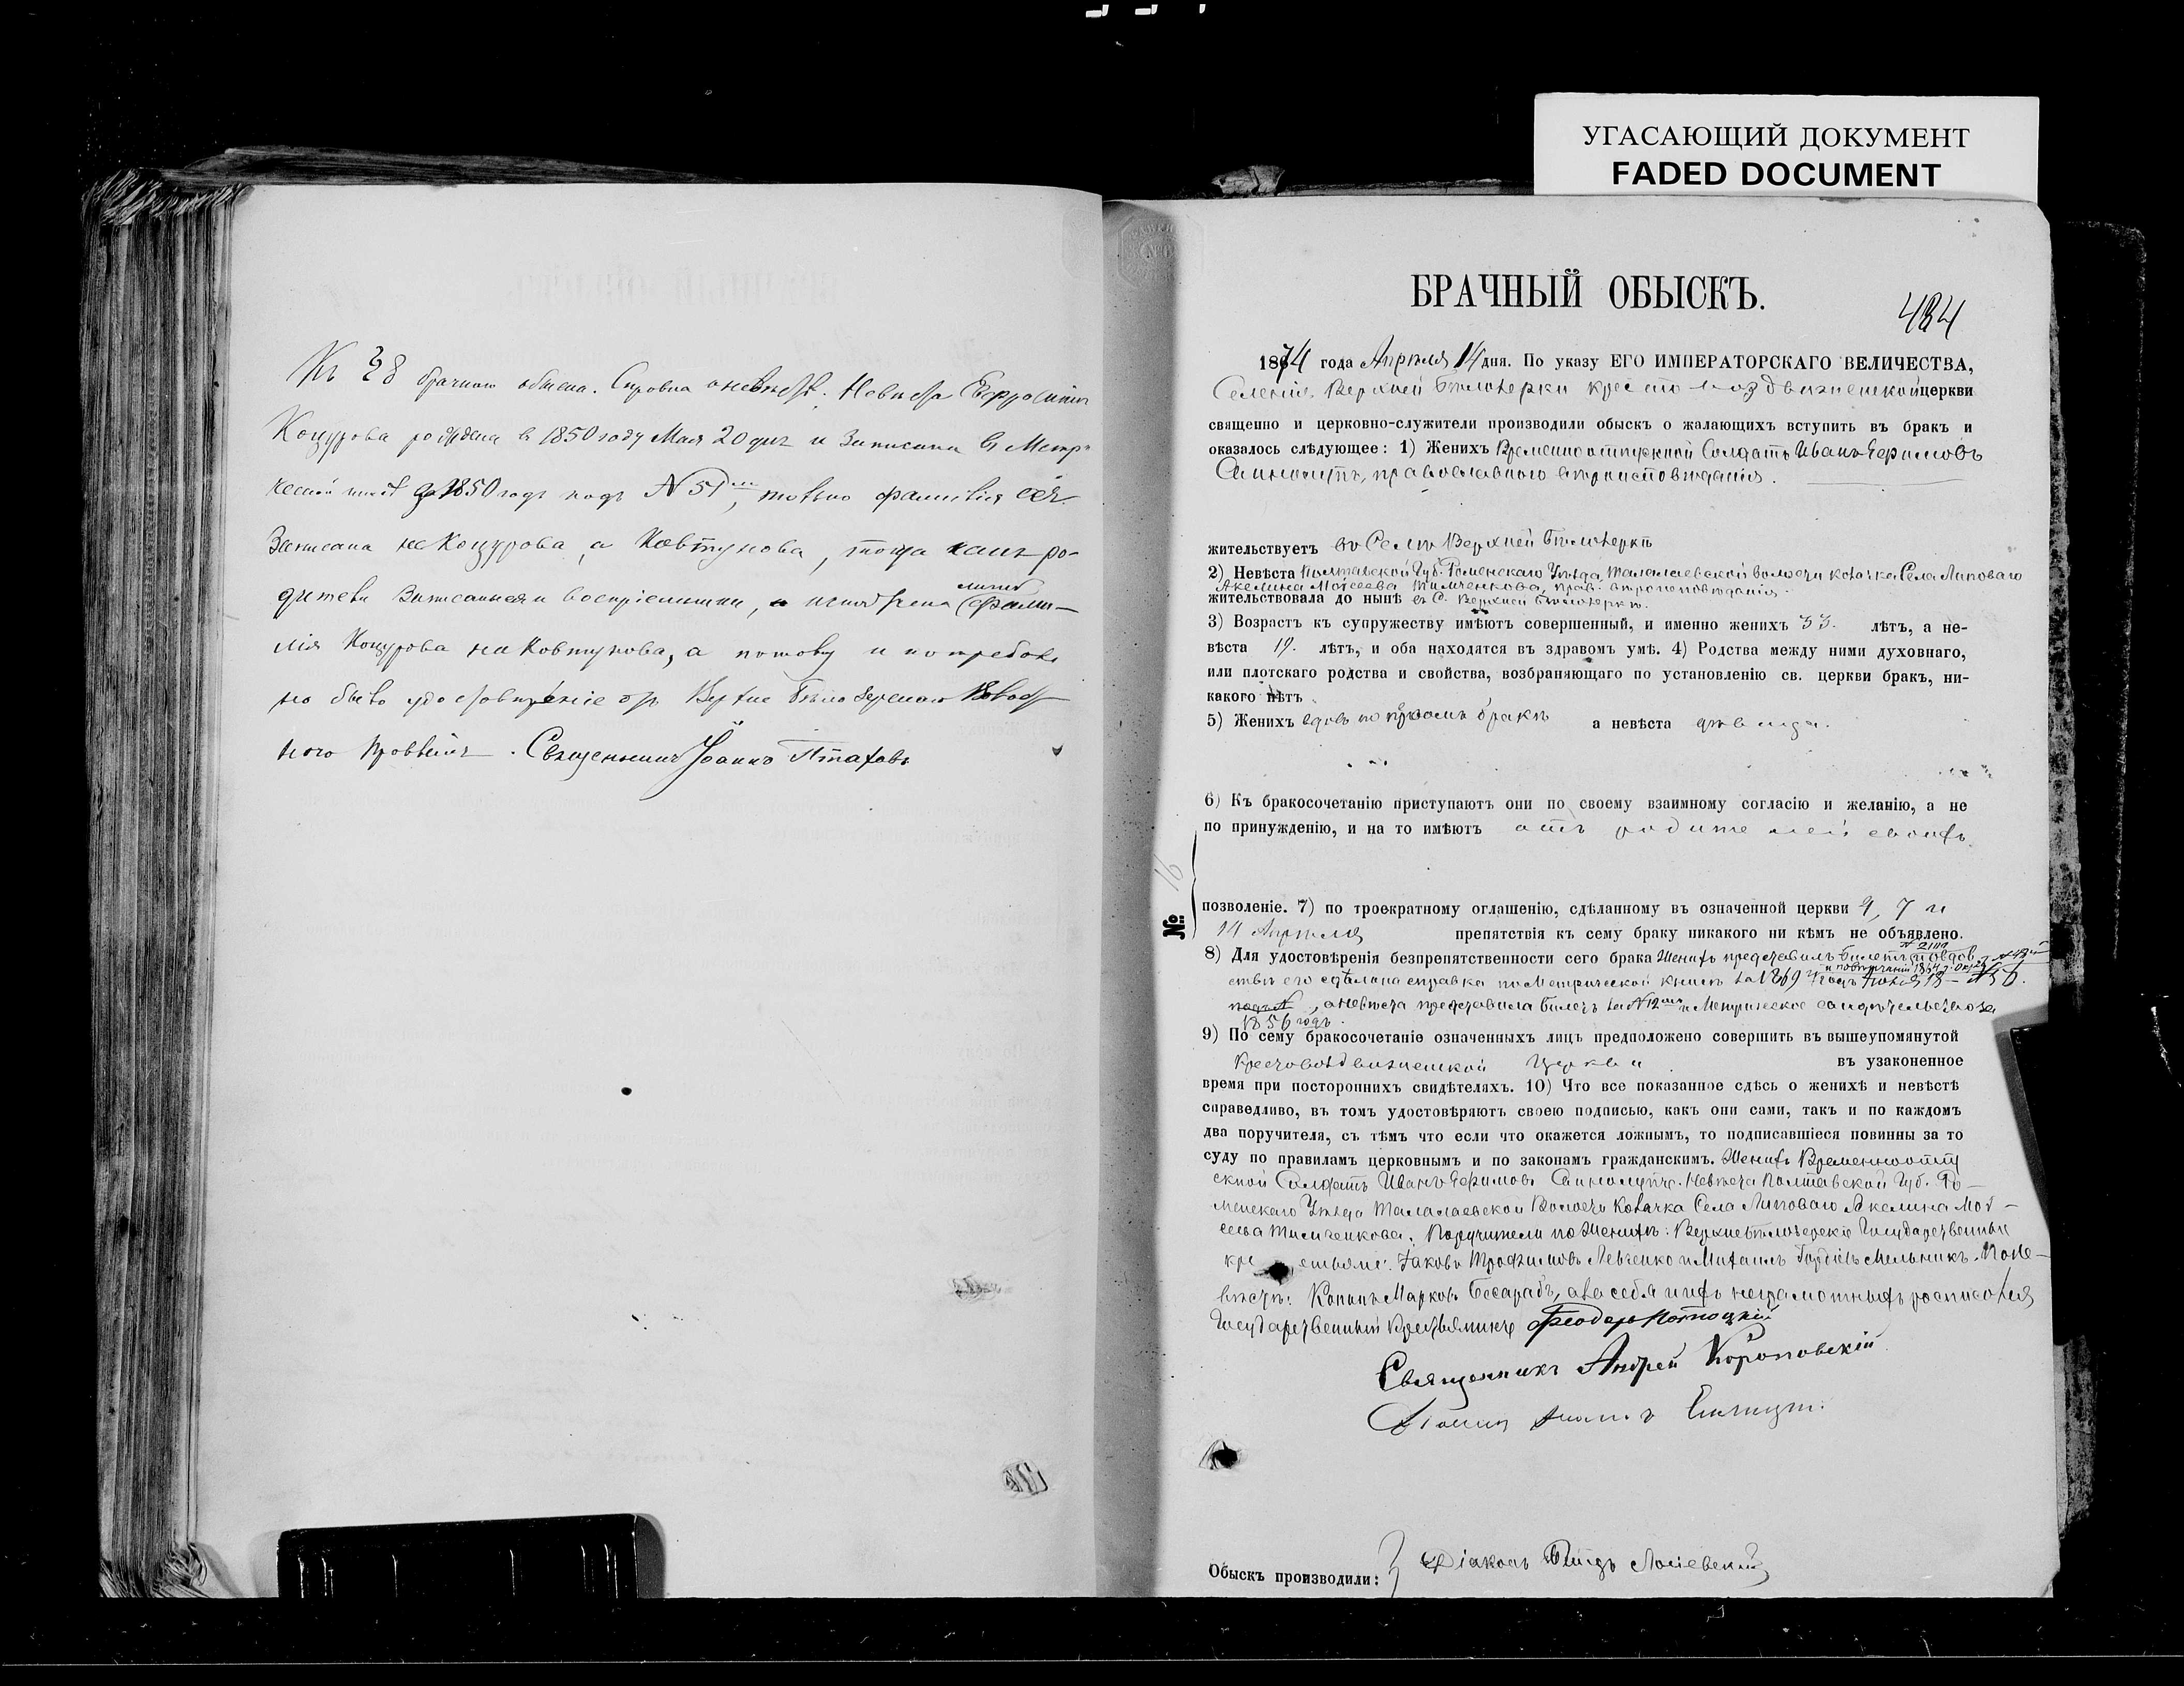 УГАСАЮЩИЙ ДОКУМЕНТ
FADED DOCUMENT
Къ 28 брачному обыску. Справка о невѣстѣ. Невѣста Евфросинія
Коцурова рождена въ 1850 году Мая 20 дня и записана въ Метри
ческой книгѣ за 1850 годъ подъ N 51, только фамилія ея
Записана не Коцурова, а Ковтунова, тогда какъ ро-
дители Записанные и воспріемники, а лишь фами-
лія Коцурова на Ковтунова, а потому и потребо
но было удостовѣреніе отъ Верхне Бѣлозерскаго Волост
ного Правленія. Священникъ Іоаннъ Птаховъ
БРАЧНЫЙ ОБЫСКЪ.
484
1874 года Апрѣля 14 дня. По указу ЕГО ИМПЕРАТОРСКАГО ВЕЛИЧЕСТВА,
Селенія Верхней Бѣлозерки Кресто воздвиженской церкви
священно и церковно-служители производили обыскъ о жалающихъ вступить въ бракъ и
оказалось слѣдующее: 1) Женихъ Временноотпускной Солдатъ Иванъ Ефимовъ
православнаго вѣроисповѣданія.
жительствуетъ въ Селѣ Верхней Бѣлозеркѣ
2) Невѣста Полтавской Губ. Роменскаго Уѣзда, Талалаевской волости козачка Села Липоваго
Акелина Моисеева Тимченкова, прав. вѣроисповѣданія.
жительствовала до нынѣ въ С. Верхней Бѣлозеркѣ.
3) Возрастъ къ супружеству имѣютъ совершенный, и именно женихъ 33. лѣтъ, а не-
вѣста 19. лѣтъ, и оба находятся въ здравомъ умѣ. 4) Родства между ними духовнаго,
или плотскаго родства и свойства, возбраняющаго по установленію св. церкви бракъ, ни-
какого нѣтъ
5) Женихъ вдовъ по первомъ бракѣ а невѣста дѣвица.
6) Къ бракосочетанію приступаютъ они по своему взаимному согласію и желанію, а не
по принужденію, и на то имѣютъ отъ родителей своихъ
№ 16
позволеніе. 7) по троекратному оглашенію, сдѣланному въ означенной церкви 4, 7 и
14 Апрѣля препятствія къ сему браку никакого ни кѣмъ не объявлено.
8) Для удостовѣренія безпрепятственности сего брака Женихъ представилъ билетъ о вдов
ствѣ его сдѣлана справка по Метрической книгѣ за 1869 годъ
подъ N, а невѣста представила билетъ за N 12 и Метрическое свидѣтельство за
1856 годъ.
9) По сему бракосочетаніе означенныхъ лицъ предположено совершить въ вышеупомянутой
Крестовоздвиженской Церкви въ узаконенное
время при посторонныхъ свидѣтеляхъ. 10) Что все показанное сдѣсь о женихѣ и невѣстѣ
справедливо, въ томъ удостовѣряютъ своею подписью, какъ они сами, такъ и по каждомъ
два поручителя, съ тѣмъ что если что окажется ложнымъ, то подписавшіеся повинны за то
суду по правиламъ церковнымъ и по законамъ гражданскимъ. Женихъ Временноотпу
скной Солдатъ Иванъ Ефимовъ Невѣста Полтавской Губ. Ро-
менскаго Уѣзда Талалаевской Волости Козачка Села Липоваго Акелина Мои-
сеева Тимченкова. Поручители по Женихѣ: Верхнебѣлозерскіе Государственные
кре стьяне: Іаковъ Трофимовъ Левченко и Михаилъ Гордіевъ Мельникъ. По не-
вѣстѣ: Кононъ Марковъ Бесарабъ, а за себя и ихъ неграмотныхъ росписался
Государственный Крестьянинъ Феодоръ Потоцкій
Священникъ Андрей Короповскій
Обыскъ производили: Діаконъ Лосіевскій